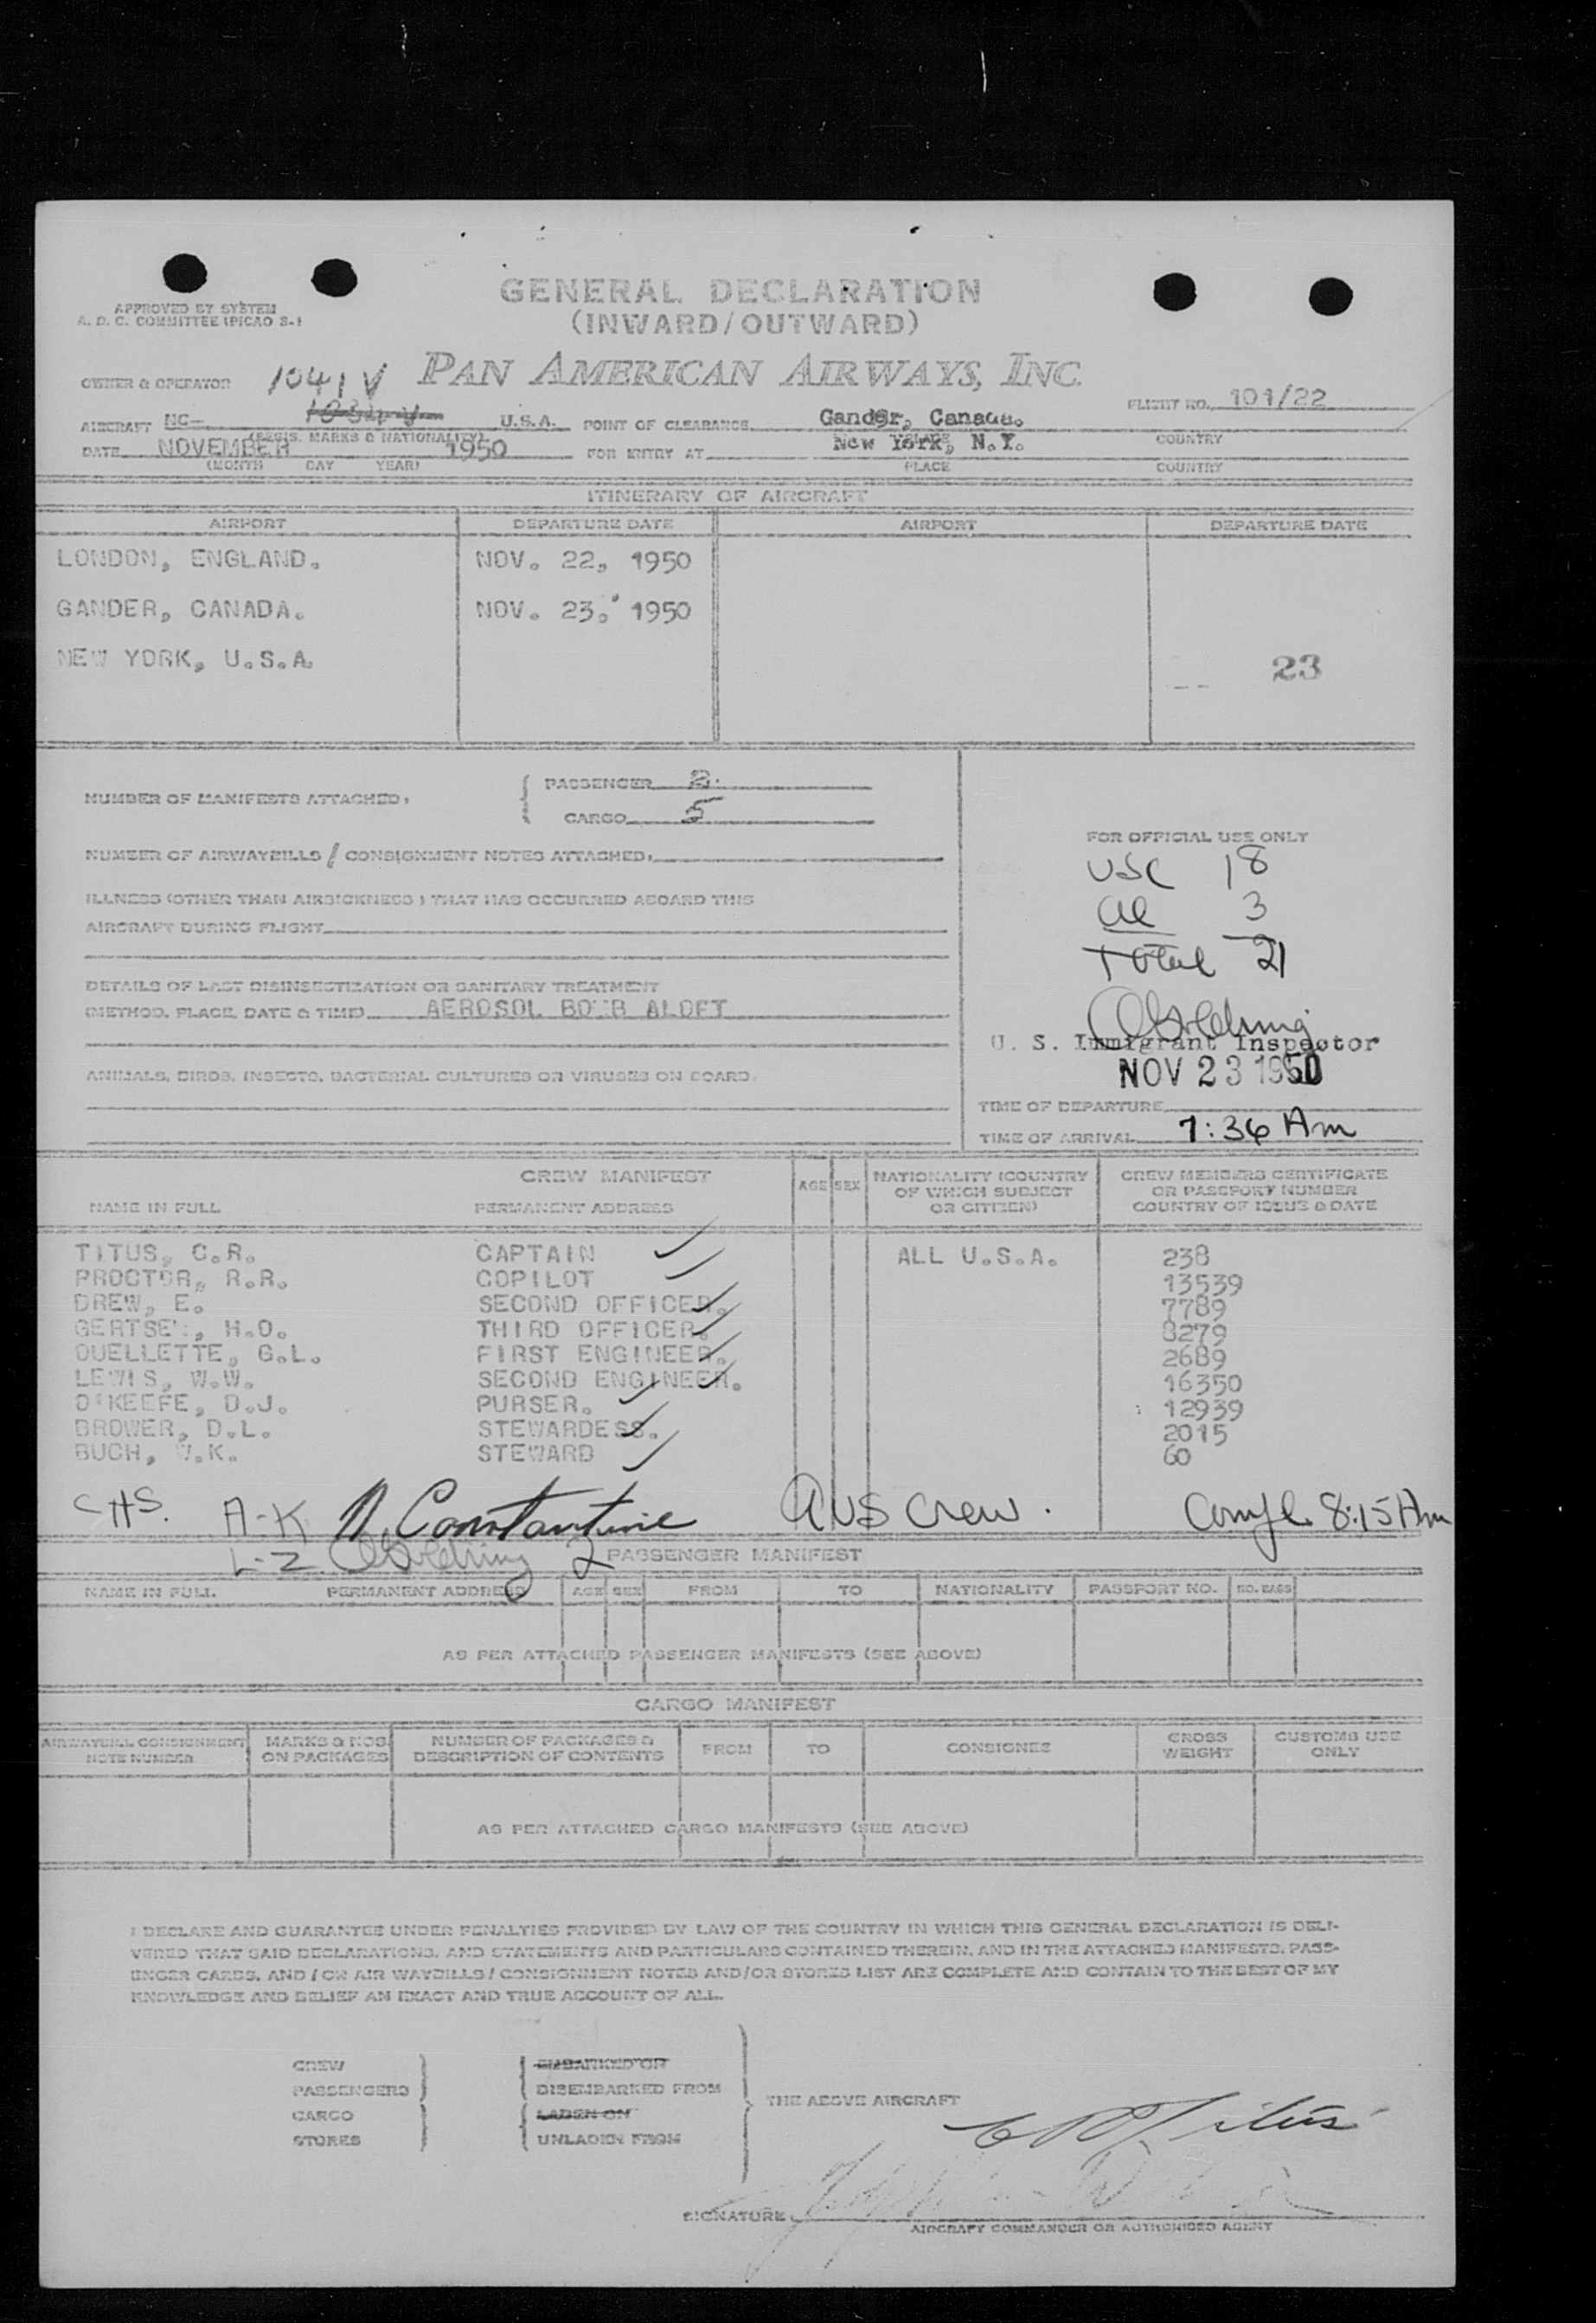 GENERAL DECLARATION
(INWARD/OUTWARD)
APPROVED BY SYSTEM
A. D. C. COMMITTEE (PICAO S-1
PAN AMERICAN AIRWAYS, INC.
OWNER & OPERATOR 1041 V
FLIGHT NO. 101/22
AIRCRAFT NC- 1034 V U.S.A. POINT OF CLEARANCE Gander, Canada.
(REGIS. MARKS & NATIONALITY) PLACE COUNTRY
DATE NOVEMBER 1950 FOR ENTRY AT New York, N.Y.
(MONTH DAY YEAR) PLACE COUNTRY
ITINERARY OF AIRCRAFT
AIRPORT DEPARTURE DATE AIRPORT DEPARTURE DATE
LONDON, ENGLAND. NOV. 22, 1950
GANDER, CANADA. NOV. 23. 1950
NEW YORK, U.S.A. 23
NUMBER OF MANIFESTS ATTACHED:
PASSENGER 2.
CARGO 5
NUMBER OF AIRWAYBILLS / CONSIGNMENT NOTES ATTACHED:
ILLNESS (OTHER THAN AIRSICKNESS) THAT HAS OCCURRED ABOARD THIS
AIRCRAFT DURING FLIGHT
DETAILS OF LAST DISINSECTIZATION OR SANITARY TREATMENT
(METHOD, PLACE, DATE & TIME) AEROSOL BOMB ALOFT
ANIMALS, BIRDS, INSECTS, BACTERIAL CULTURES OR VIRUSES ON BOARD:
FOR OFFICIAL USE ONLY
USC 18
al 3
Total 21
U. S. Immigrant Inspector
NOV 23 1950
TIME OF DEPARTURE
TIME OF ARRIVAL 7:36 Am
CREW MANIFEST
NAME IN FULL PERMANENT ADDRESS AGE SEX NATIONALITY (COUNTRY OF WHICH SUBJECT OR CITIZEN) CREW MEMBERS CERTIFICATE OR PASSPORT NUMBER COUNTRY OF ISSUE & DATE
TITUS, C.R. CAPTAIN ALL U.S.A. 238
PROCTOR, R.R. COPILOT 13539
DREW, E. SECOND OFFICER. 7789
GERTSEN, H.O. THIRD OFFICER. 8279
OUELLETTE, G.L. FIRST ENGINEER. 2689
LEWIS, W.W. SECOND ENGINEER. 16350
O'KEEFE, D.J. PURSER. 12939
BROWER, D.L. STEWARDESS. 2015
BUCH, W.K. STEWARD 60
CHS. A-K N. Constantine all US Crew. Compl. 8:15 Am
L-Z Golding 2
PASSENGER MANIFEST
NAME IN FULL PERMANENT ADDRESS AGE SEX FROM TO NATIONALITY PASSPORT NO. NO. BAGS
AS PER ATTACHED PASSENGER MANIFESTS (SEE ABOVE)
CARGO MANIFEST
AIRWAYBILL CONSIGNMENT NOTE NUMBER MARKS & NOS. ON PACKAGES NUMBER OF PACKAGES & DESCRIPTION OF CONTENTS FROM TO CONSIGNEE GROSS WEIGHT CUSTOMS USE ONLY
AS PER ATTACHED CARGO MANIFESTS (SEE ABOVE)
I DECLARE AND GUARANTEE UNDER PENALTIES PROVIDED BY LAW OF THE COUNTRY IN WHICH THIS GENERAL DECLARATION IS DELI-
VERED THAT SAID DECLARATIONS, AND STATEMENTS AND PARTICULARS CONTAINED THEREIN, AND IN THE ATTACHED MANIFESTS, PASS-
ENGER CARDS, AND / OR AIR WAYBILLS / CONSIGNMENT NOTES AND/OR STORES LIST ARE COMPLETE AND CONTAIN TO THE BEST OF MY
KNOWLEDGE AND BELIEF AN EXACT AND TRUE ACCOUNT OF ALL.
CREW EMBARKED ON
PASSENGERS DISEMBARKED FROM
THE ABOVE AIRCRAFT
CARGO LADEN ON
STORES UNLADEN FROM
CR Titus
SIGNATURE
AIRCRAFT COMMANDER OR AUTHORISED AGENT